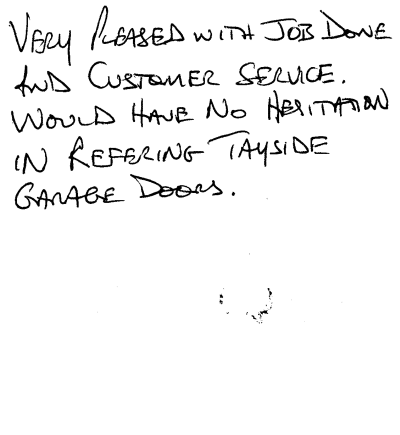 VERY PLEASED WITH JOB DONE
AND CUSTOMER SERVICE.
WOULD HAVE NO HESITATION
IN REFERING TAYSIDE
GARAGE DOORS.